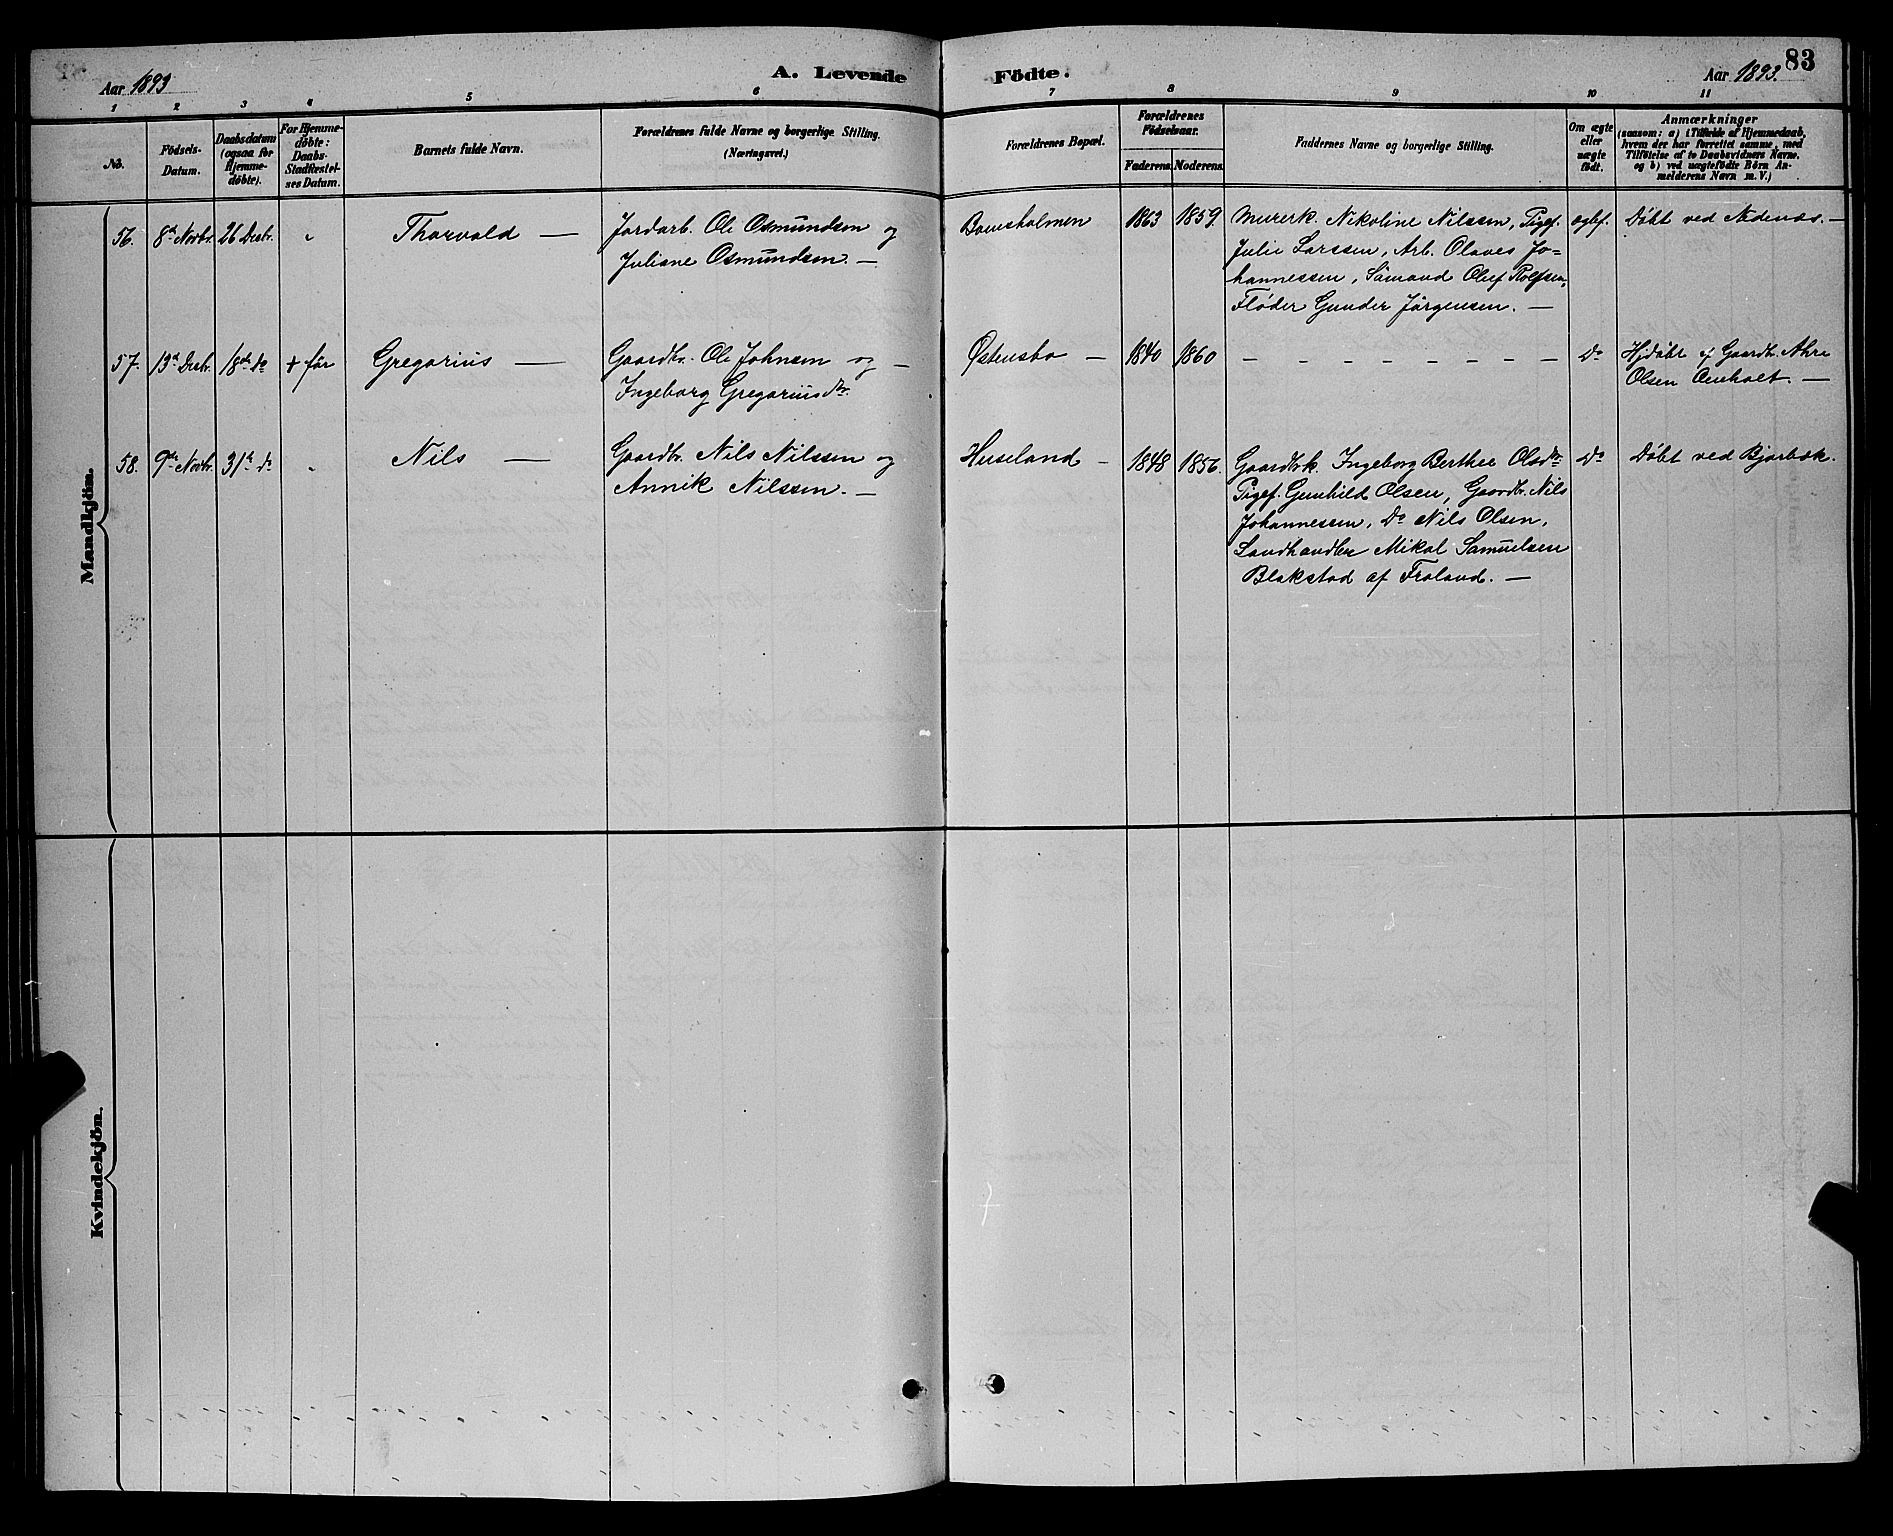 Aar 1893
A. Levende
Födte.
Aar 1893.
83
1 2 3 4 5 6 7 8 9 10 11
No.
Födsels-
Datum.
Daabsdatum
(ogsaa for
Hjemme-
döbte).
For Hjemme-
döbte:
Daabs-
Stadfæstel-
ses Datum.
Barnets fulde Navn.
Forældrenes fulde Navne og borgerlige Stilling.
(Næringsvei.)
Forældrenes Bopæl.
Forældrenes
Födselsaar.
Faderens.
Moderens.
Faddernes Navne og borgerlige Stilling.
Om ægte
eller
uægte
födt.
Anmærkninger
(saasom: a) i Tilfælde af Hjemmedaab,
hvem der har forrettet samme, med
Tilföielse af to Daabsvidners Navne,
og b) ved uægtefödte Börn An-
melderens Navn m. V.)
Mandkjön.
56. 8de Novbr. 26 Desbr. " Thorvald —
Jordarb. Ole Osmundsen og
Juliane Osmundsen. —
1863 1859.
Murerk. Nikoline Nilssen, Pigef.
Julie Larssen, Arb. Olaves Jo=
hannessen, Sömand Oluf Rolfsen,
Fløder Gunder Jörgensen. —
ægtef.
Döbt ved Nedenæs. —
57. 13de Desbr. 18de do + før Gregorius —
Gaardbr. Ole Johnsen og —
Ingeborg Gregoriusdtr.
Østensbo —
1840 1860
— — — — — — — —
Do
Hjdöbt af Gaardb.
Olsen —
58. 9de Novbr. 31te do " Nils —
Gaardbr. Nils Nilssen og
Annik Nilssen. —
Huseland —
1848 1856.
Gaardbrk. Ingeborg Berthee Olsdtr.
Pigef. Gunhild Olsen, Gaardbr. Nils
Johannessen, Do Nils Olsen,
Landhandler Mikal Samuelsen
Blakstad af Froland. —
Do
Döbt ved Bjorbæk.
Kvindekjön.